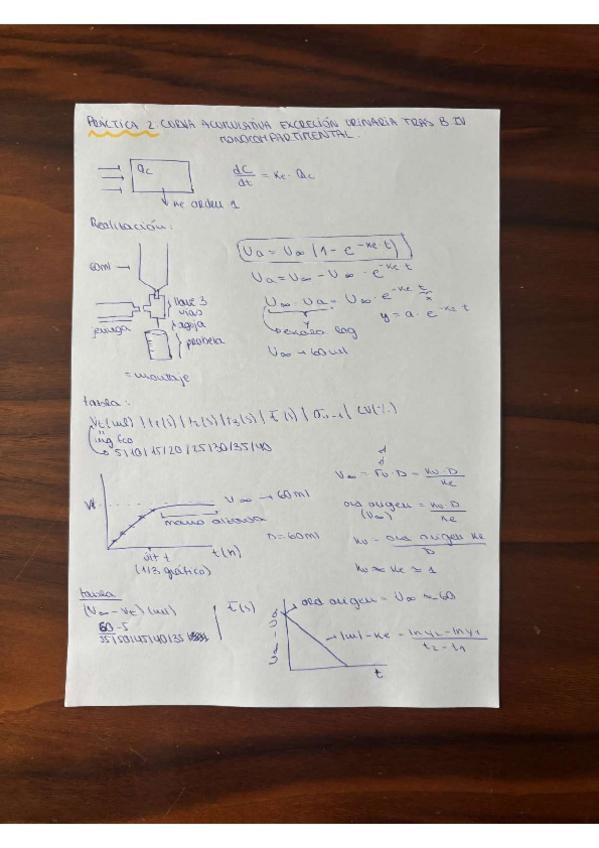 PRÁCTICA 2: CURVA ACUMULATIVA EXCRECIÓN URINARIA TRAS B IV
MONOCOMPARTIMENTAL.
Qc
dC/dt = Ke · Qc
Ke orden 1
Realización:
60ml
llave 3
vías
aguja
jeringa
probeta
= montaje
Ua = U∞ (1 - e^-Ke·t)
Ua = U∞ - U∞ · e^-Ke t
U∞ - Ua = U∞ · e^-Ke t
x
y = a · e^-Ke t
escala log
U∞ → 60 ml
tabla:
Vt (ml) | t1(s) | t2(s) | t3(s) | t̄ (s) | σn-1 | CV(%)
5/10/15/20/25/30/35/40
U∞ → 60ml
mano alzada
n = 60ml
t(h)
(1/3 gráfico)
U∞ = Fu · D = Ku · D / Ke
ord origen = Ku · D / Ke
(U∞)
Ku = ord origen Ke / D
Ku ≈ Ke ≈ 1
tabla
(V∞ - Vt) (ml) | t̄ (s)
60 - 5
55/50/45/40/35
U∞ - Ua
ord origen = U∞ ≈ 60
|m| = Ke = ln y2 - ln y1 / t2 - t1
t